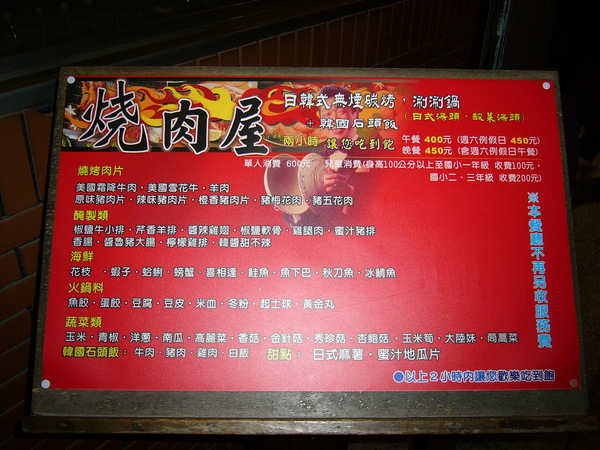 燒肉屋
日韓式無煙碳烤，涮涮鍋
(日式湯頭．酸菜湯頭)
+ 韓國石頭飯
兩小時 讓您吃到飽
午餐 400元 (週六例假日 450元)
晚餐 450元 (含週六例假日午餐)
單人消費 600元 兒童消費(身高100公分以上至國小一年級 收費100元，
國小二、三年級 收費200元)
燒烤肉片
美國霜降牛肉．美國雪花牛．羊肉
原味豬肉片．辣味豬肉片．橙香豬肉片．豬梅花肉．豬五花肉
醃製類
椒鹽牛小排．芹香羊排．醬辣雞翅．椒鹽軟骨．雞腿肉．蜜汁豬排
香腸．醬魯豬大腸．檸檬雞排．韓醬甜不辣
海鮮
花枝 ．蝦子．蛤蜊．螃蟹．喜相逢．鮭魚．魚下巴．秋刀魚．冰鯛魚
火鍋料
魚餃．蛋餃．豆腐．豆皮．米血．冬粉．起士球．黃金丸
蔬菜類
玉米．青椒．洋蔥．南瓜．高麗菜．香菇．金針菇．秀珍菇．杏鮑菇．玉米筍．大陸妹．茼蒿菜
韓國石頭飯：牛肉．豬肉．雞肉．白飯 甜點：日式麻薯．蜜汁地瓜片
※本餐廳不再另收服務費
●以上2小時內讓您歡樂吃到飽